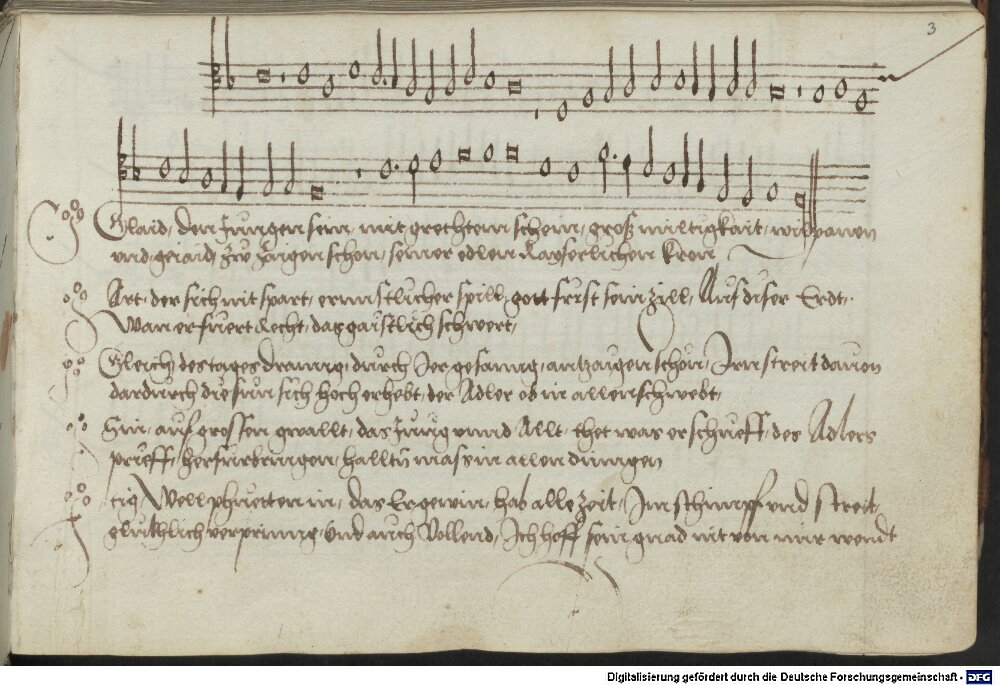 3
Glaid, den Jungen sein, mit grechtem schein, groß miltigkait,
vnd gejaid, zw zaigen schon, seiner edlen kayserlichen kron
Art, der sich nit spart, ernnstlicher spill, gott frist sein zill, Auf diser Erdt,
Wan er fuert Recht, das gaistlich schwert,
Gleich des tages dranng, durch Jer gesanng, antzaigen schon, Irn streit dauon
dardurch die sun sich hoch erhebt, der Adler ob in allen schwebt,
Hin, auf grossen gwallt, das Jung vnnd Allt, thet was er schueff, des Adlers
prueff, herfur bringen, hallten mass in allen dingen
tig Well phuetten in, das Er gewin, hab alle Zeit, Im schimpf vnd streit,
glucklich verpring, Vnd auch Vollend, Ich hoff sein gnad nit von mir wendt
Digitalisierung gefördert durch die Deutsche Forschungsgemeinschaft - DFG